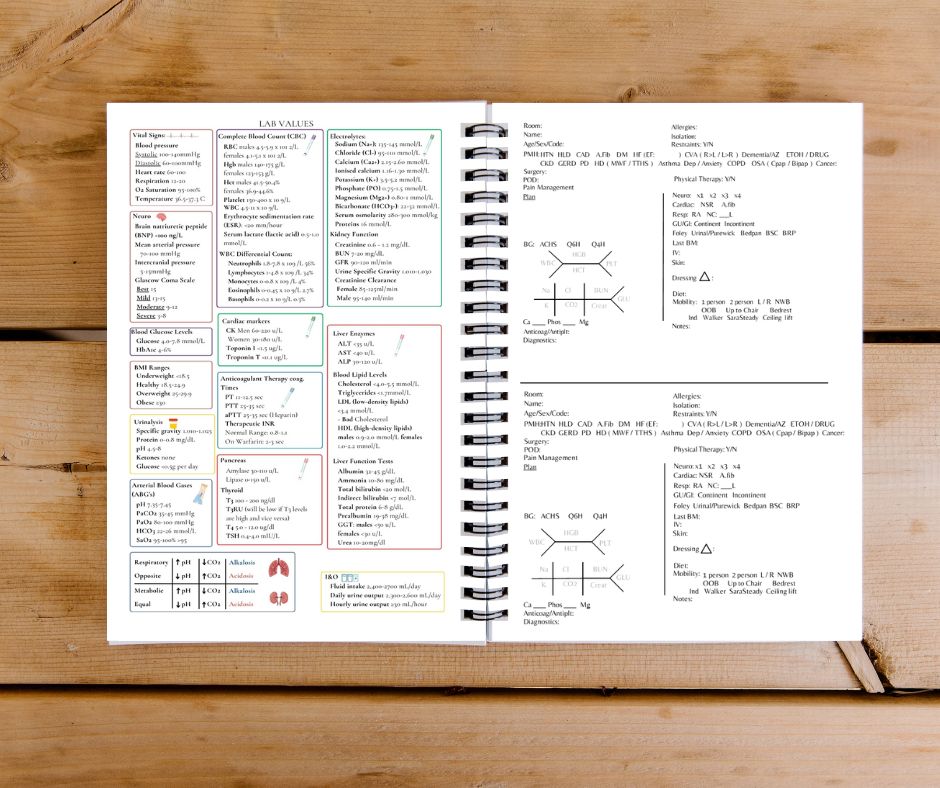 LAB VALUES
Vital Signs:
Blood pressure
Systolic 100-140mmHg
Diastolic 60-100mmHg
Heart rate 60-100
Respiration 12-20
O2 Saturation 95-100%
Temperature 36.5-37.5 C
Neuro
Brain natriuretic peptide
(BNP) <100 ng/L
Mean arterial pressure
70-100 mmHg
Intercranial pressure
5-15mmHg
Glascow Coma Scale
Best 15
Mild 13-15
Moderate 9-12
Severe 3-8
Blood Glucose Levels
Glucose 4.0-7.8 mmol/L
HbA1c 4-6%
BMI Ranges
Underweight <18.5
Healthy 18.5-24.9
Overweight 25-29.9
Obese ≥30
Urinalysis
Specific gravity 1.010-1.025
Protein 0-0.8 mg/dL
pH 4.5-8
Ketones none
Glucose <0.5g per day
Arterial Blood Gases
(ABG's)
pH 7.35-7.45
PaCO2 35-45 mmHg
PaO2 80-100 mmHg
HCO3 22-26 mmol/L
SaO2 95-100% >95
Complete Blood Count (CBC)
RBC males 4.5-5.9 x 101 2/L
females 4.1-5.1 x 101 2/L
Hgb males 140-175 g/L
females 123-153 g/L
Hct males 41.5-50.4%
females 36.9-44.6%
Platelet 150-400 x 10 9/L
WBC 4.5-11 x 10 9/L
Erythrocyte sedimentation rate
(ESR): <20 mm/hour
Serum lactate (lactic acid) 0.5-1.0
mmol/L
WBC Differential Count:
Neutrophils 1.8-7.8 x 10 9/L 56%
Lymphocytes 1-4.8 x 10 9/L 34%
Monocytes 0-0.8 x 10 9/L 4%
Eosinophils 0-0.45 x 10 9/L 2.7%
Basophils 0-0.2 x 10 9/L 0.3%
Cardiac markers
CK Men 60-220 u/L
Women 30-180 u/L
Toponin I <1.5 ug/L
Troponin T <0.1 ug/L
Anticoagulant Therapy coag.
Times
PT 11-12.5 sec
PTT 25-35 sec
aPTT 25-35 sec (Heparin)
Therapeutic INR
Normal Range: 0.8-1.2
On Warfarin: 2-3 sec
Pancreas
Amylase 30-110 u/L
Lipase 0-150 u/L
Thyroid
T3 100 - 200 ng/dl
T3RU (will be low if T3 levels
are high and vice versa)
T4 5.0 - 12.0 ug/dl
TSH 0.4-4.0 mLU/L
Electrolytes:
Sodium (Na+): 135-145 mmol/L
Chloride (Cl-) 95-110 mmol/L
Calcium (Ca2+) 2.15-2.60 mmol/L
Ionised calcium 1.16-1.30 mmol/L
Potassium (K+) 3.5-5.2 mmol/L
Phosphate (PO) 0.75-1.5 mmol/L
Magnesium (Mg2+) 0.80-1 mmol/L
Bicarbonate (HCO3-): 22-32 mmol/L
Serum osmolarity 280-300 mmol/kg
Proteins 16 mmol/L
Kidney Function
Creatinine 0.6 - 1.2 mg/dL
BUN 7-20 mg/dL
GFR 90-120 ml/min
Urine Specific Gravity 1.010-1.030
Creatinine Clearance
Female 85-125ml/min
Male 95-140 ml/min
Liver Enzymes
ALT <35 u/L
AST <40 u/L
ALP 30-120 u/L
Blood Lipid Levels
Cholesterol <4.0-5.5 mmol/L
Triglycerides <1.7mmol/L
LDL (low-density lipids)
<3.4 mmol/L
- Bad Cholesterol
HDL (high-density lipids)
males 0.9-2.0 mmol/L females
1.0-2.2 mmol/L
Liver Function Tests
Albumin 32-45 g/dL
Ammonia 10-80 mg/dL
Total bilirubin <20 mol/L
Indirect bilirubin <7 mol/L
Total protein 6-8 g/dL
Prealbumin 19-38 mg/dL
GGT: males <50 u/L
females <30 u/L
Urea 10-20mg/dl
Respiratory ↑ pH ↓CO2 Alkalosis
Opposite ↓ pH ↑CO2 Acidosis
Metabolic ↑ pH ↑CO2 Alkalosis
Equal ↓ pH ↓CO2 Acidosis
I&O
Fluid intake 2,400-2700 mL/day
Daily urine output 2,300-2,600 mL/day
Hourly urine output ≥30 mL/hour
Room:
Name:
Age/Sex/Code:
Allergies:
Isolation:
Restraints: Y/N
PMH:HTN HLD CAD A.Fib DM HF (EF: ) CVA ( R>L / L>R ) Dementia/AZ ETOH / DRUG
CKD GERD PD HD ( MWF / TTHS ) Asthma Dep / Anxiety COPD OSA ( Cpap / Bipap ) Cancer:
Surgery:
POD:
Pain Management
Plan
BG: ACHS Q6H Q4H
WBC HGB PLT
HCT
Na Cl BUN
GLU
K CO2 Creat
Ca ___ Phos ___ Mg
Anticoag/Antiplt:
Diagnostics:
Physical Therapy: Y/N
Neuro: x1 x2 x3 x4
Cardiac: NSR A.fib
Resp: RA NC: ___L
GU/GI: Continent Incontinent
Foley Urinal/Purewick Bedpan BSC BRP
Last BM:
IV:
Skin:
Dressing △:
Diet:
Mobility: 1 person 2 person L / R NWB
OOB Up to Chair Bedrest
Ind Walker SaraSteady Ceiling lift
Notes:
Room:
Name:
Age/Sex/Code:
Allergies:
Isolation:
Restraints: Y/N
PMH:HTN HLD CAD A.Fib DM HF (EF: ) CVA ( R>L / L>R ) Dementia/AZ ETOH / DRUG
CKD GERD PD HD ( MWF / TTHS ) Asthma Dep / Anxiety COPD OSA ( Cpap / Bipap ) Cancer:
Surgery:
POD:
Pain Management
Plan
BG: ACHS Q6H Q4H
WBC HGB PLT
HCT
Na Cl BUN
GLU
K CO2 Creat
Ca ___ Phos ___ Mg
Anticoag/Antiplt:
Diagnostics:
Physical Therapy: Y/N
Neuro: x1 x2 x3 x4
Cardiac: NSR A.fib
Resp: RA NC: ___L
GU/GI: Continent Incontinent
Foley Urinal/Purewick Bedpan BSC BRP
Last BM:
IV:
Skin:
Dressing △:
Diet:
Mobility: 1 person 2 person L / R NWB
OOB Up to Chair Bedrest
Ind Walker SaraSteady Ceiling lift
Notes: